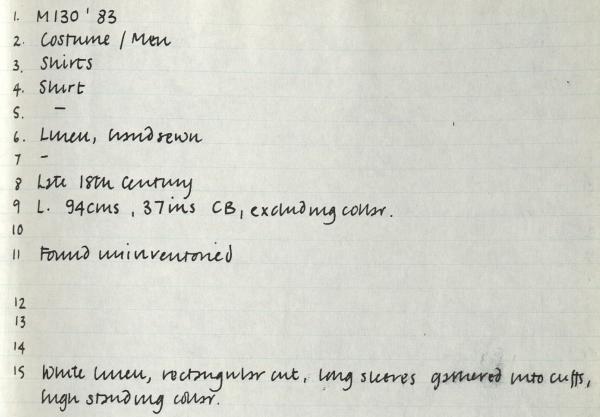 1. M130 '83
2. Costume / Men
3. Shirts
4. Shirt
5. –
6. Linen, handsewn
7 -
8 Late 18th Century
9 L. 94cms, 37ins CB, excluding collar.
10
11 Found uninventoried
12
13
14
15 White linen, rectangular cut, long sleeves gathered into cuffs,
high standing collar.